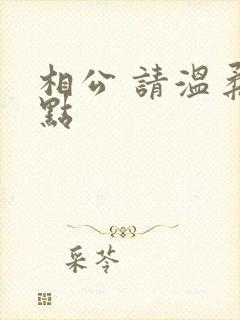 相公 請溫柔
點
采苓